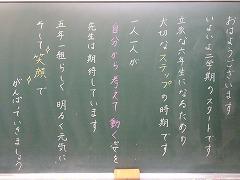 おはようございます
いよいよ二学期のスタートです
立派な六年生になるための
大切なステップの時期です
一人一人が
自分から考えて動く姿を
先生は期待しています
五年一組らしく明るく元気に
そして笑顔で
がんばっていきましょう